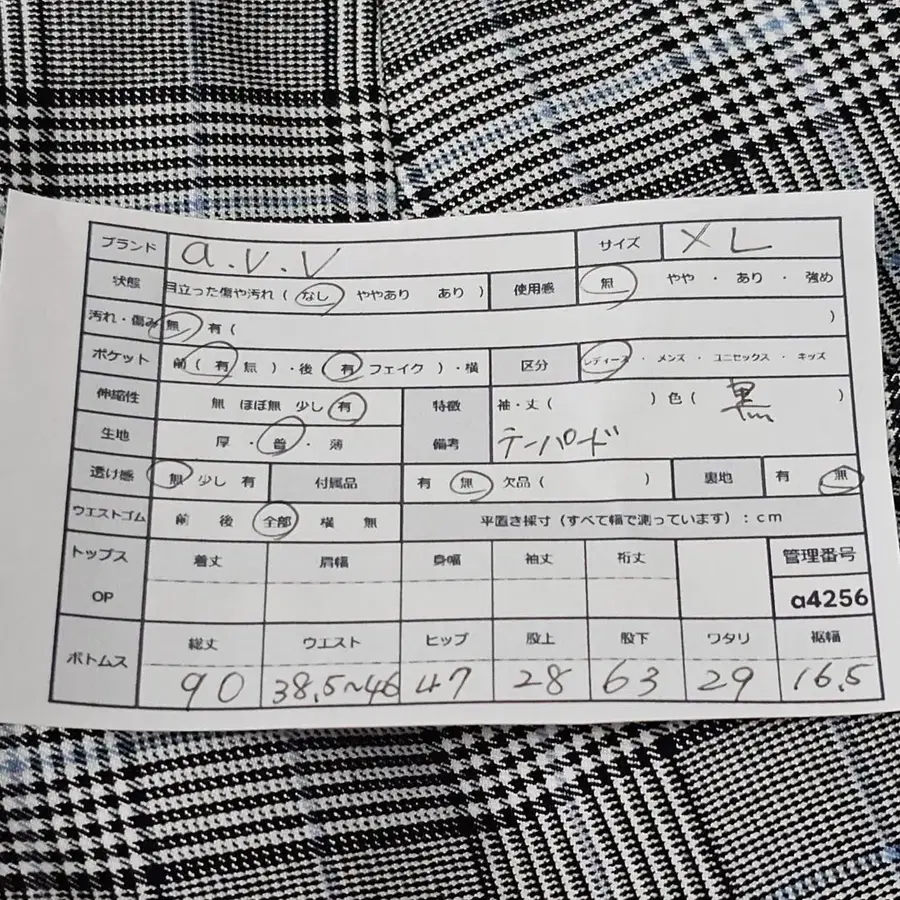 ブランド a.v.v サイズ XL
状態 目立った傷や汚れ ( なし ややあり あり ) 使用感 無 やや ・ あり ・ 強め
汚れ・傷み 無 有 ( )
ポケット 前 ( 有 無 ) ・後 ( 有 フェイク ) ・横 区分 レディース ・ メンズ ・ ユニセックス ・ キッズ
伸縮性 無 ほぼ無 少し 有 特徴 袖・丈 ( ) 色 ( 黒 )
生地 厚 ・ 普 ・ 薄 備考 テーパード
透け感 無 少し 有 付属品 有 無 欠品 ( ) 裏地 有 無
ウエストゴム 前 後 全部 横 無 平置き採寸 (すべて幅で測っています) : cm
トップス 着丈 肩幅 身幅 袖丈 裄丈 管理番号
OP a4256
ボトムス 総丈 ウエスト ヒップ 股上 股下 ワタリ 裾幅
90 38.5~46 47 28 63 29 16.5